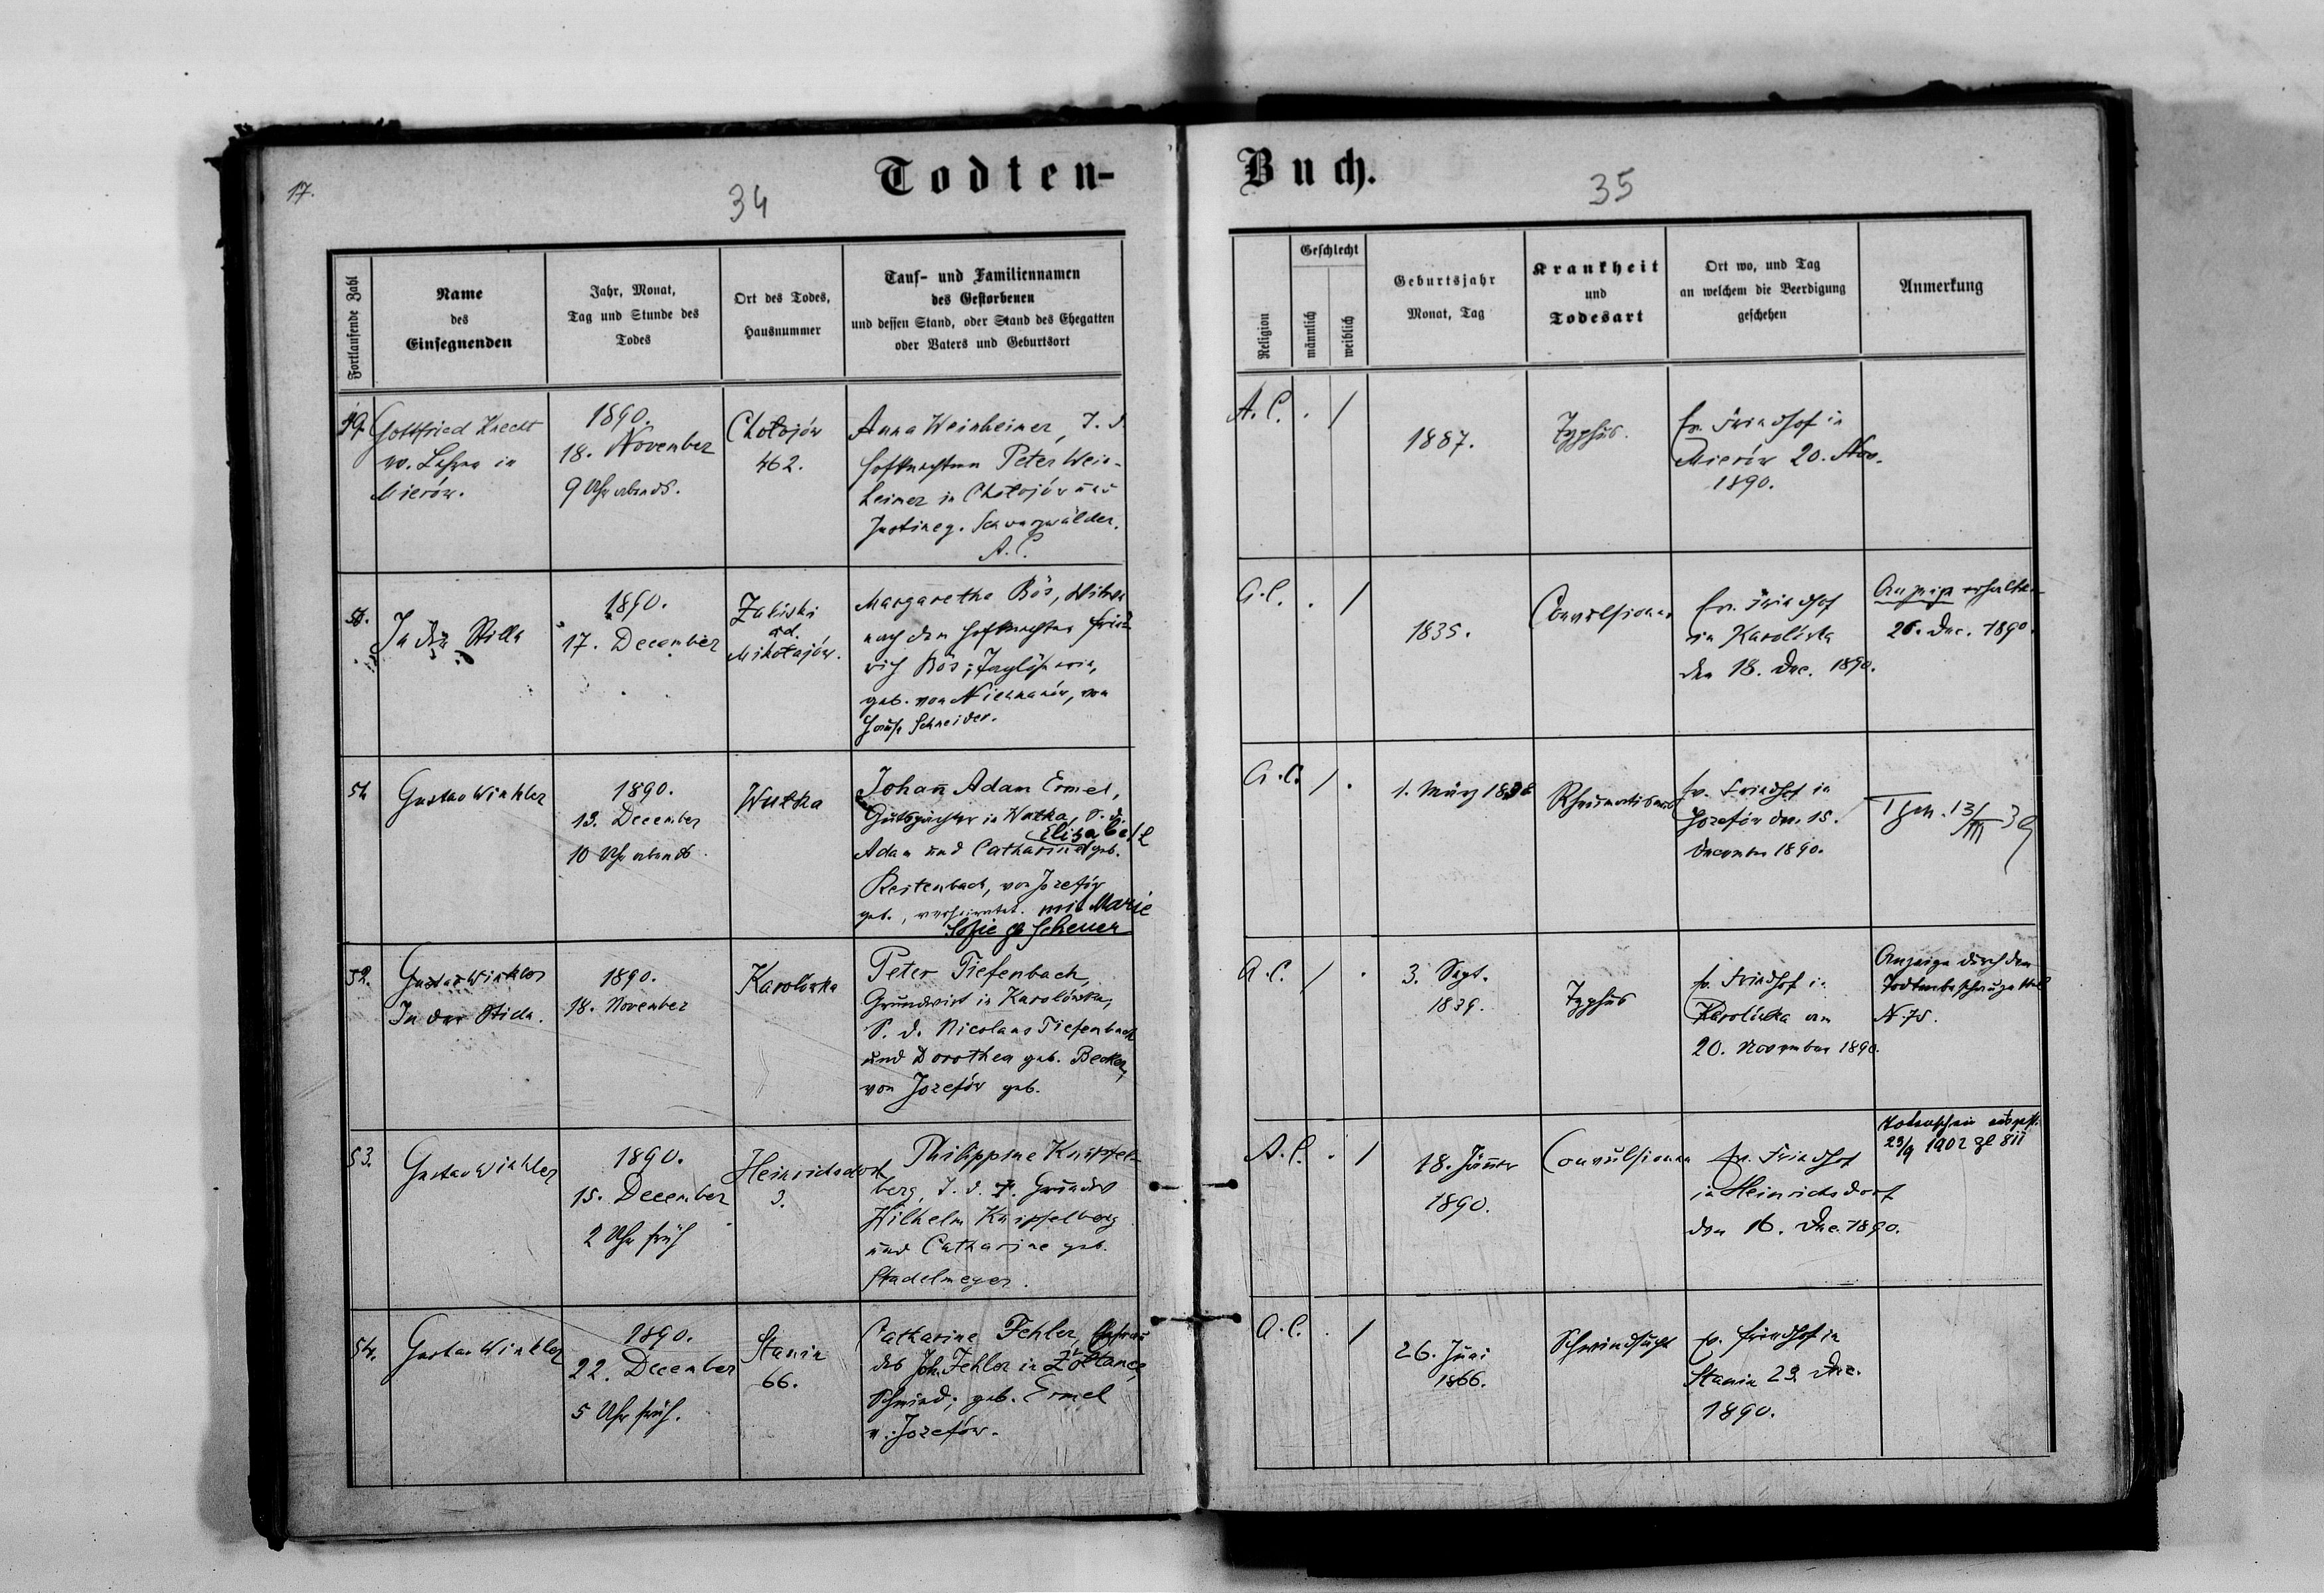 17.
34
Todten-
Fortlaufende Zahl
Name
des
Einsegnenden
Jahr, Monat,
Tag und Stunde des
Todes
Ort des Todes,
Hausnummer
Tauf- und Familiennamen
des Gestorbenen
und dessen Stand, oder Stand des Ehegatten
oder Vaters und Geburtsort
49.
Gottfried Knecht
w. Lehrer in
Mierów.
1890.
18. November
9 Uhr abends.
Chołojów
462.
Anna Weinheimer, T. d.
Hofpächters Peter Wein-
heimer in Chołojów und
Justine g. Schwarzwälder.
A. C.
50.
In der Stille
1890.
17. December
Zaliski
ad.
Mikołajów.
Margaretha Bös, Witwe
nach dem Hofpächter Fried-
rich Bös; Taglöhnerin,
geb. von Niemanów, von
Hause Schneider.
51.
Gustav Winkler
1890.
13. December
10 Uhr abends.
Wutka
Johann Adam Ermel,
Gutspächter in Wutka, S. d.
Elisabeth
Adam und Catharine geb.
Restenbach, von Jozefów
geb., verheiratet. mit Marie
Sofie g. Scheuer
52.
Gustav Winkler
In der Stille.
1890.
18. November
Karolówka
Peter Tiefenbach,
Grundwirt in Karolówka,
S. d. Nicolaus Tiefenbach
und Dorothea geb. Becker,
von Jozefów geb.
53.
Gustav Winkler
1890.
15. December
2 Uhr früh
Heinrichsdorf
3.
Philippine Knipfel-
berg, T. d. Grundw.
Wilhelm Knipfelberg
und Catharine geb.
Stadelmeyer.
54.
Gustav Winkler
1890.
22. December
5 Uhr früh.
Stanin
66.
Catharine Fehler, Ehefrau
des Joh. Fehler in Żółtance,
Schmied; geb. Ermel
v. Jozefów.
Buch.
35
Religion
Geschlecht
männlich
weiblich
Geburtsjahr
Monat, Tag
Krankheit
und
Todesart
Ort wo, und Tag
an welchem die Beerdigung
geschehen
Anmerkung
A. C.
. /
1887.
Typhus.
Ev. Friedhof in
Mierów 20. Nov.
1890.
A. C.
. /
1835.
Convulsionen
Ev. Friedhof
in Karolówka
den 18. Dec. 1890.
Anzeige erhalten
26. Dec. 1890.
A. C.
/ .
1. März 1838
Rheumatismus
Ev. Friedhof in
Jozefów den 15.
December 1890.
A. C.
/ .
3. Sept.
1839.
Typhus
Ev. Friedhof in
Karolówka am
20. November 1890.
Anzeige durch den
Todtenbeschauzettel
N. 75.
A. C.
. /
18. Jänner
1890.
Convulsionen
Ev. Friedhof
in Heinrichsdorf
den 16. Dec. 1890.
Totenschein ausgest.
23/9 1902 zl 811
A. C.
. /
26. Juni
1866.
Schwindsucht
Ev. Friedhof in
Stanin 23 Dec.
1890.